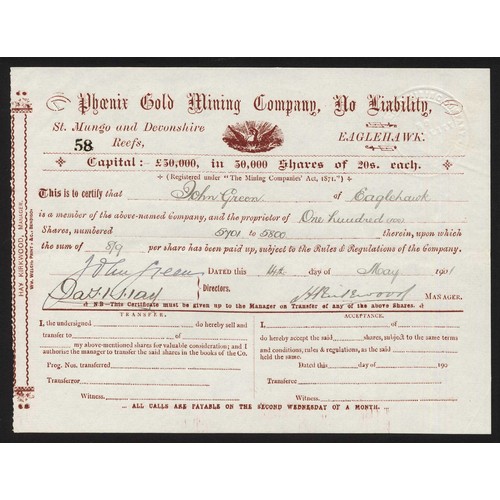 Phœnix Gold Mining Company, No Liability,
St. Mungo and Devonshire Reefs, EAGLEHAWK.
58
Capital: £30,000, in 30,000 Shares of 20s. each.
(Registered under "The Mining Companies' Act, 1871.")
This is to certify that John Green of Eaglehawk
is a member of the above-named Company, and the proprietor of One hundred
Shares, numbered 5701 to 5800 therein, upon which
the sum of 8/9 per share has been paid up, subject to the Rules & Regulations of the Company.
John Green DATED this 14th day of May 1901
Directors. MANAGER.
N.B—This Certificate must be given up to the Manager on Transfer of any of the above Shares.
TRANSFER.
I, the undersigned do hereby sell and
transfer to of
my above-mentioned shares for valuable consideration; and I
authorise the manager to transfer the said shares in the books of the Co.
Prog. Nos. transferred
Transferror
Witness
ACCEPTANCE.
I, of
do hereby accept the said shares, subject to the same terms
and conditions, rules & regulations, as the said
held the same.
Dated this day of 190
Transferee
Witness
... ALL CALLS ARE PAYABLE ON THE SECOND WEDNESDAY OF A MONTH. ...
HAY KIRKWOOD, MANAGER.